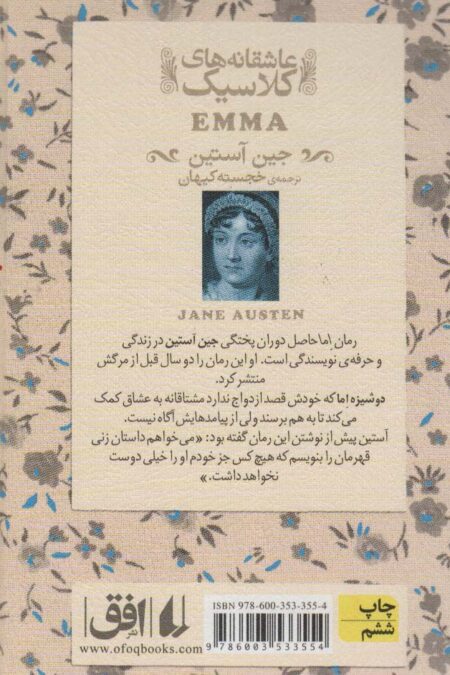 عاشقانه‌های
کلاسیک
EMMA
جین آستین
ترجمه‌ی خجسته کیهان
JANE AUSTEN
رمان اِما حاصل دوران پختگی جین آستین در زندگی
و حرفه‌ی نویسندگی است. او این رمان را دو سال قبل از مرگش
منتشر کرد.
دوشیزه اما که خودش قصد ازدواج ندارد مشتاقانه به عشاق کمک
می‌کند تا به هم برسند ولی از پیامدهایش آگاه نیست.
آستین پیش از نوشتن این رمان گفته بود: «می‌خواهم داستان زنی
قهرمان را بنویسم که هیچ کس جز خودم او را خیلی دوست
نخواهد داشت.»
نشر افق
www.ofoqbooks.com
ISBN 978-600-353-355-4
9 786003 533554
چاپ
ششم